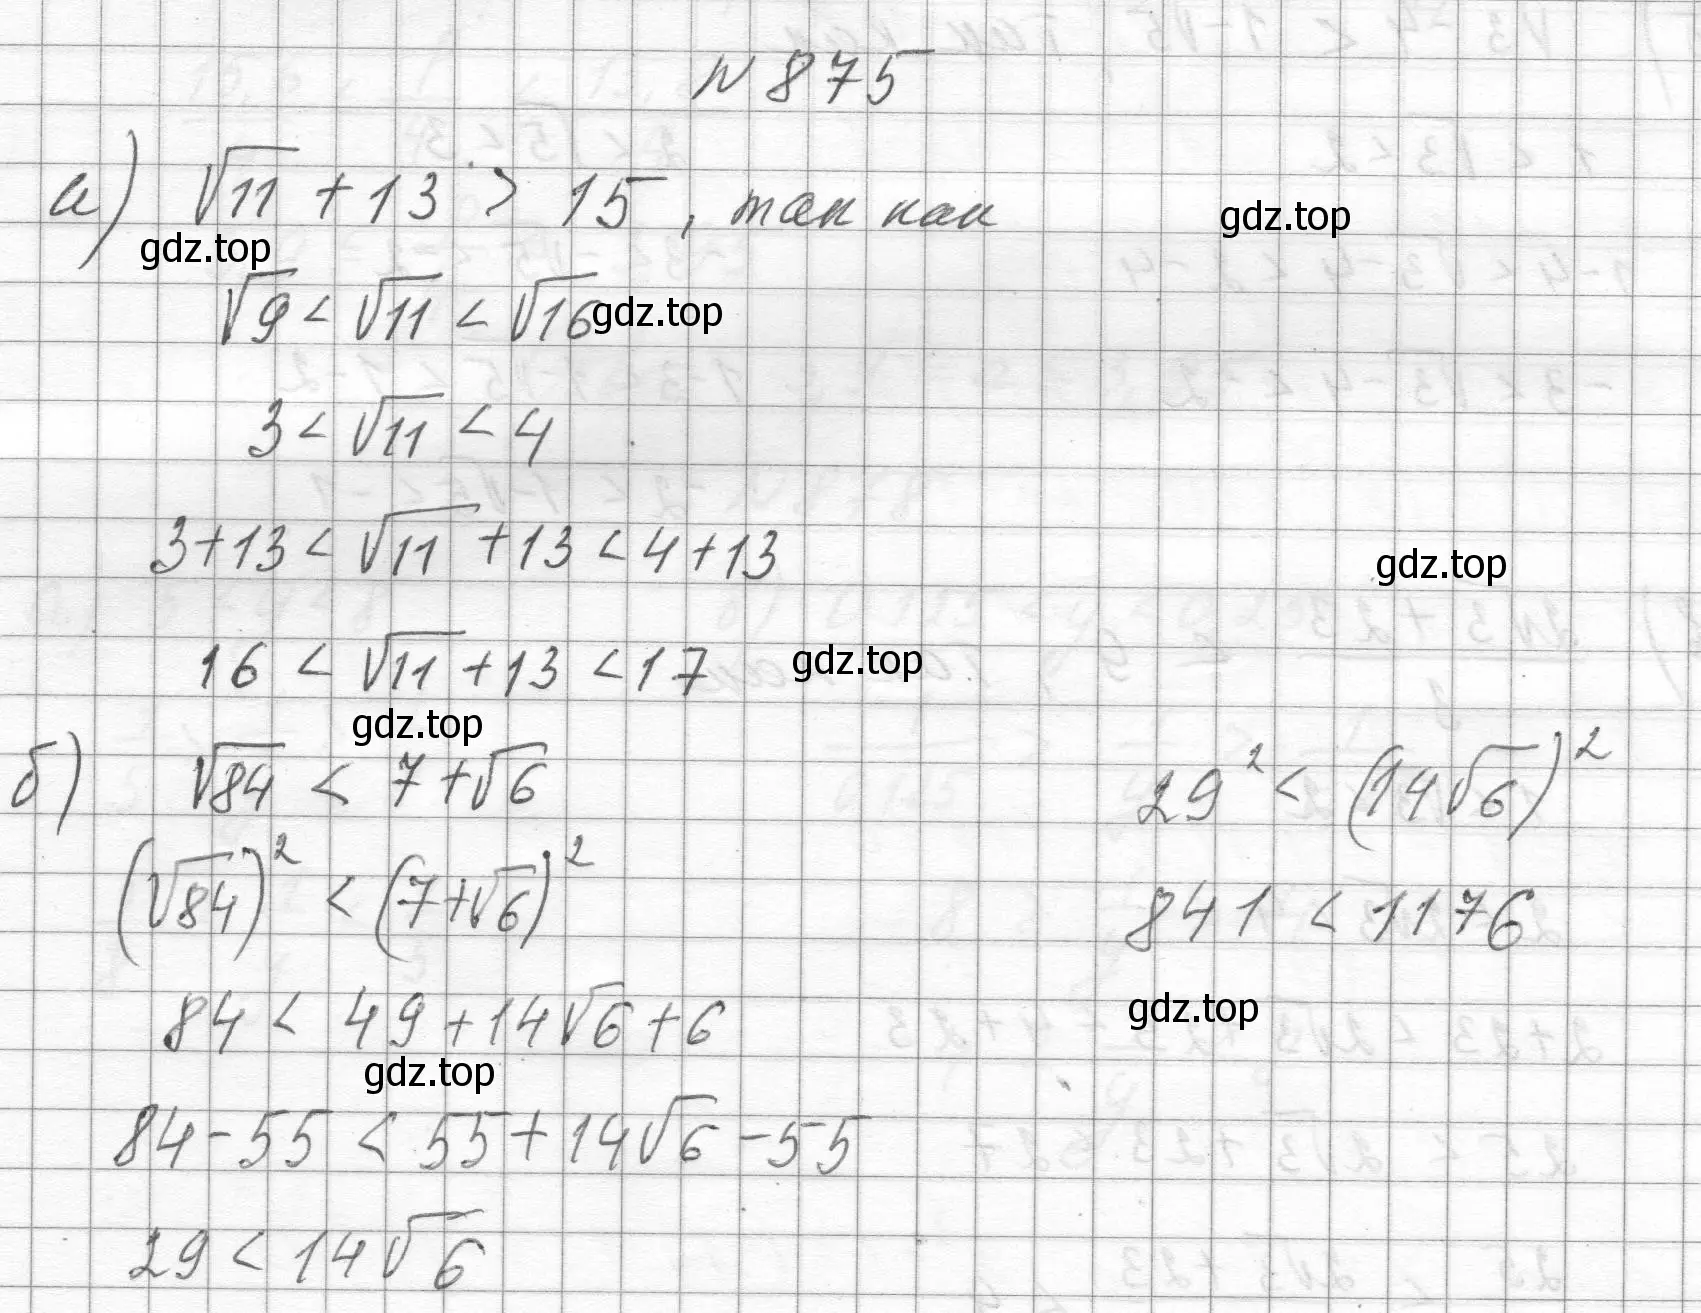 N 875
а) √11 + 13 > 15, так как
gdz.top
gdz.top
√9 < √11 < √16
gdz.top
3 < √11 < 4
3+13 < √11 + 13 < 4+13
gdz.top
16 < √11 + 13 < 17
gdz.top
gdz.top
б) √84 < 7 + √6
(√84)² < (7+√6)²
84 < 49 + 14√6 + 6
gdz.top
84 - 55 < 55 + 14√6 - 55
29 < 14√6
29² < (14√6)²
841 < 1176
gdz.top